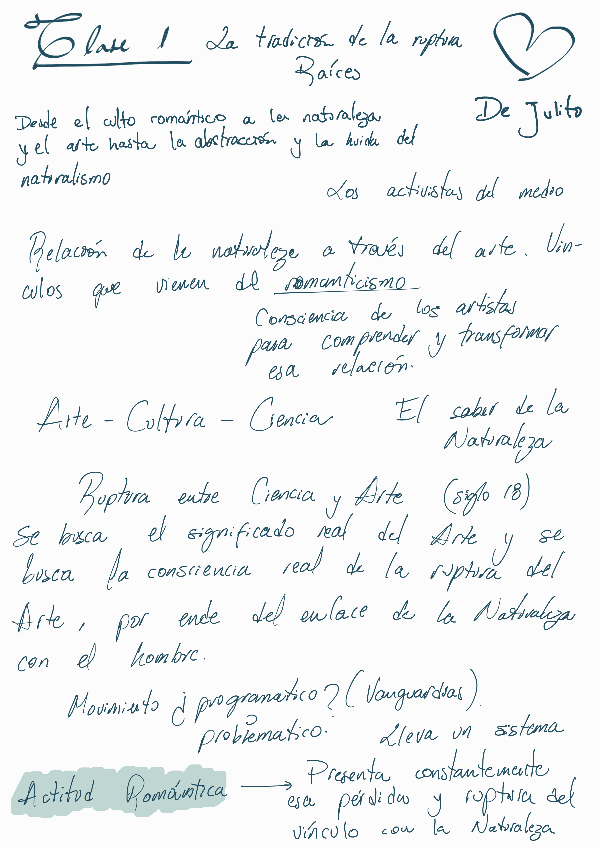 Clase 1 La tradición de la ruptura
Raíces
De Julito
Desde el culto romántico a la naturaleza
y el arte hasta la abstracción y la huida del
naturalismo
Los activistas del medio
Relación de la naturaleza a través del arte. Vin-
culos que vienen del romanticismo
Consciencia de los artistas
para comprender y transformar
esa relación.
Arte - Cultura - Ciencia
El saber de la
Naturaleza
Ruptura entre Ciencia y Arte (siglo 18)
Se busca el significado real del Arte y se
busca la consciencia real de la ruptura del
Arte, por ende del enlace de la Naturaleza
con el hombre.
Movimiento ¿programatico? (Vanguardias)
o
problematico.
Lleva un sistema
Actitud Romántica → Presenta constantemente
esa pérdida y ruptura del
vínculo con la Naturaleza